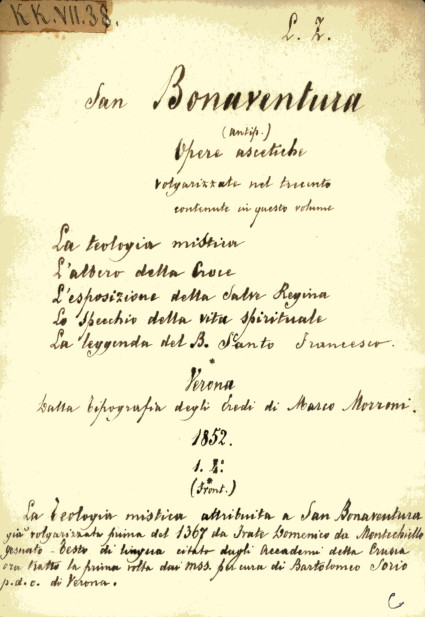 KK.VII.38.
L. Z.
San Bonaventura
(Antip.)
Opere ascetiche
volgarizzate nel trecento
contenute in questo volume
La teologia mistica
L'albero della Croce
L'esposizione della Salve Regina
Lo Specchio della vita spirituale
La leggenda del B. Santo Francesco.
*
Verona
Dalla Tipografia degli Eredi di Marco Morroni.
1852.
(Front.)
La Teologia mistica attribuita a San Bonaventura
già volgarizzata prima del 1367 da Frate Domenico da Montechiello
gesuato - Testo di lingua citato dagli Accademi della Crusca
ora tratto la prima volta dai mss. per cura di Bartolomeo Sorio
p.d.c. di Verona.